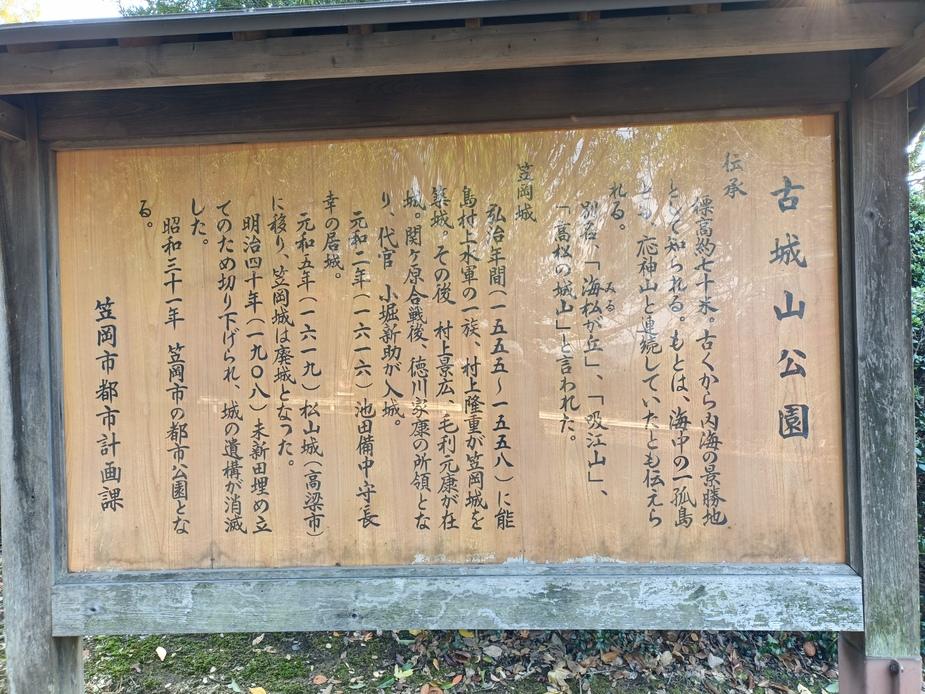 古城山公園
伝承
標高約七十米。古くから内海の景勝地
として知られる。もとは、海中の一孤島
とも 応神山と連続していたとも伝えら
れる。
別名 「海松が丘」、「吸江山」、
みる
「高松の城山」と言われた。
笠岡城
弘治年間(一五五五〜一五五八)に能
島村上水軍の一族、村上隆重が笠岡城を
築城。その後 村上景広、毛利元康が在
城。関ケ原合戦後、徳川家康の所領とな
り、代官 小堀新助が入城。
元和二年(一六一六)池田備中守長
幸の居城。
元和五年(一六一九)松山城(高梁市)
に移り、笠岡城は廃城となった。
明治四十年(一九〇八)未新田埋め立
てのため切り下げられ、城の遺構が消滅
した。
昭和三十一年 笠岡市の都市公園とな
る。
笠岡市都市計画課